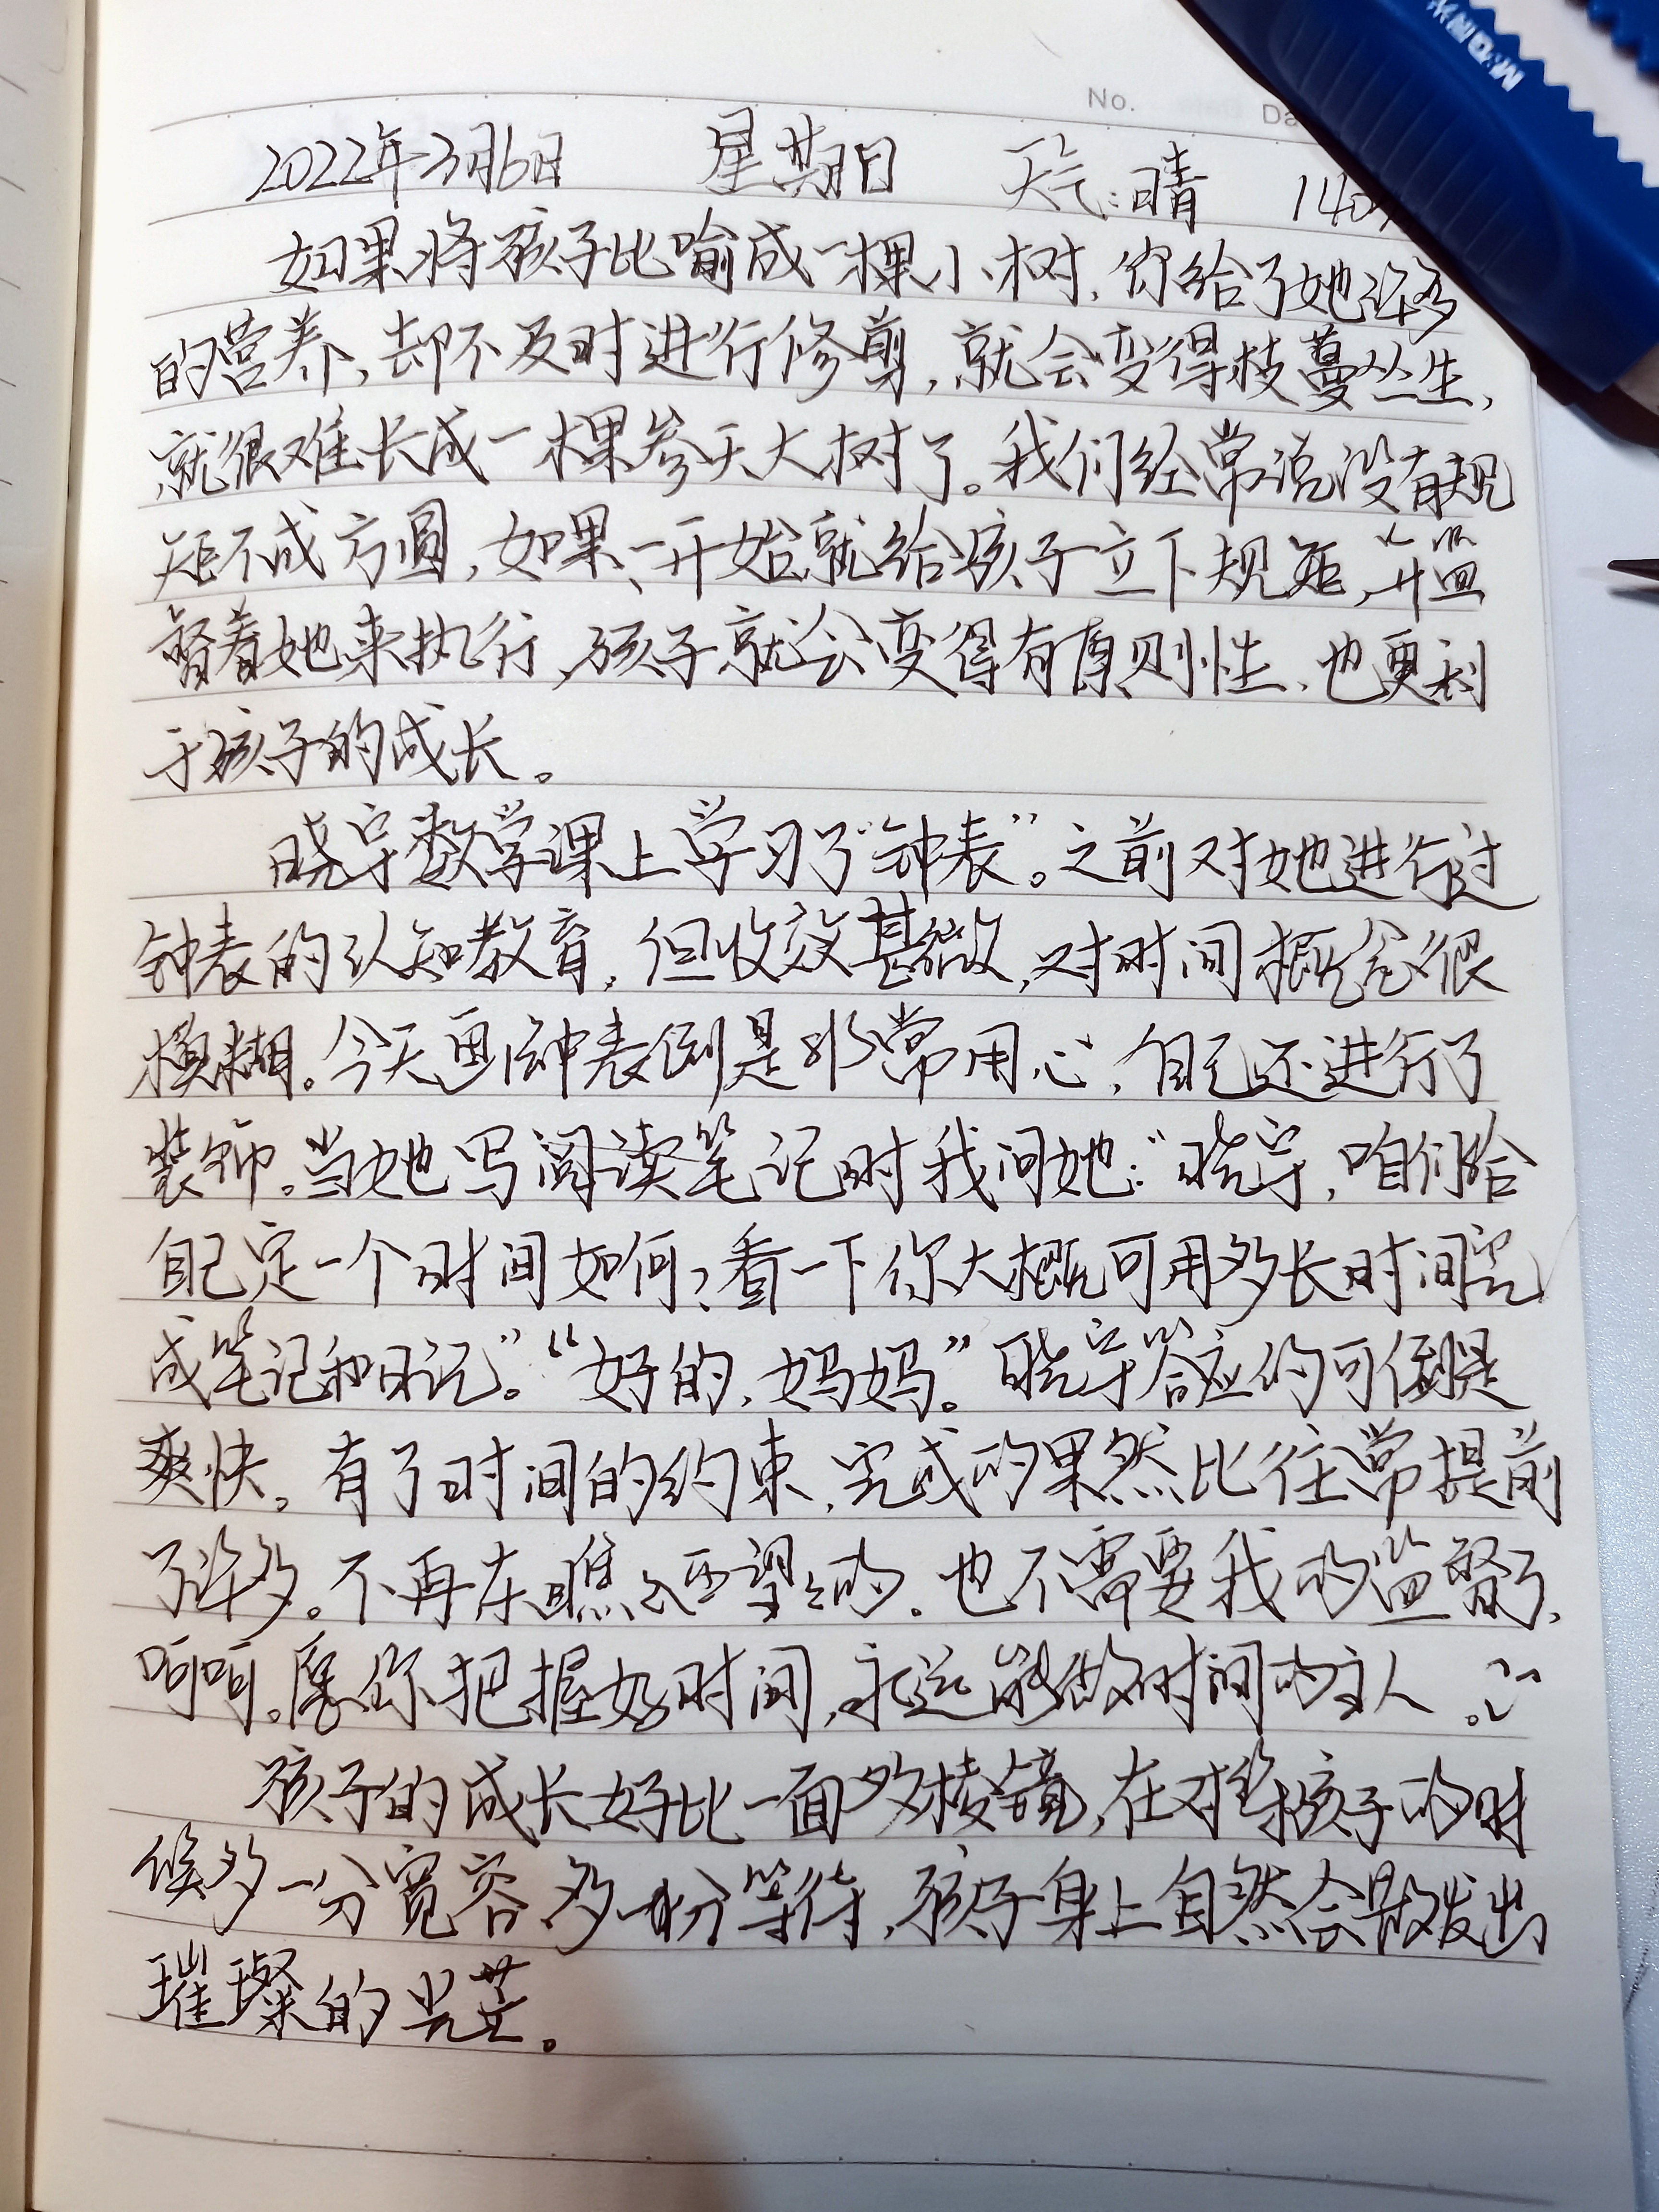 M&G 晨光
No. Da
2022年3月6日 星期日 天气:晴 140
如果将孩子比喻成一棵小树,你给了她许多
的营养,却不及时进行修剪,就会变得枝蔓丛生,
就很难长成一棵参天大树了。我们经常说没有规
矩不成方圆,如果一开始就给孩子立下规矩,并监
督着她来执行,孩子就会变得有原则性,也更利
于孩子的成长。
晓宇数学课上学习了“钟表”。之前对她进行过
钟表的认知教育,但收效甚微,对时间概念很
模糊。今天画钟表倒是非常用心,自己还进行了
装饰。当她写阅读笔记时我问她:“晓宇,咱们给
自己定一个时间如何?看一下你大概可用多长时间完
成笔记和日记。”“好的,妈妈。”晓宇答应的可倒是
爽快。有了时间的约束,完成的果然比往常提前
了许多。不再东瞧瞧西望望的。也不需要我的监督了,
呵呵。愿你把握好时间,永远能做时间的主人。
孩子的成长好比一面多棱镜,在对待孩子的时
候多一分宽容多一份等待,孩子身上自然会散发出
璀璨的光芒。